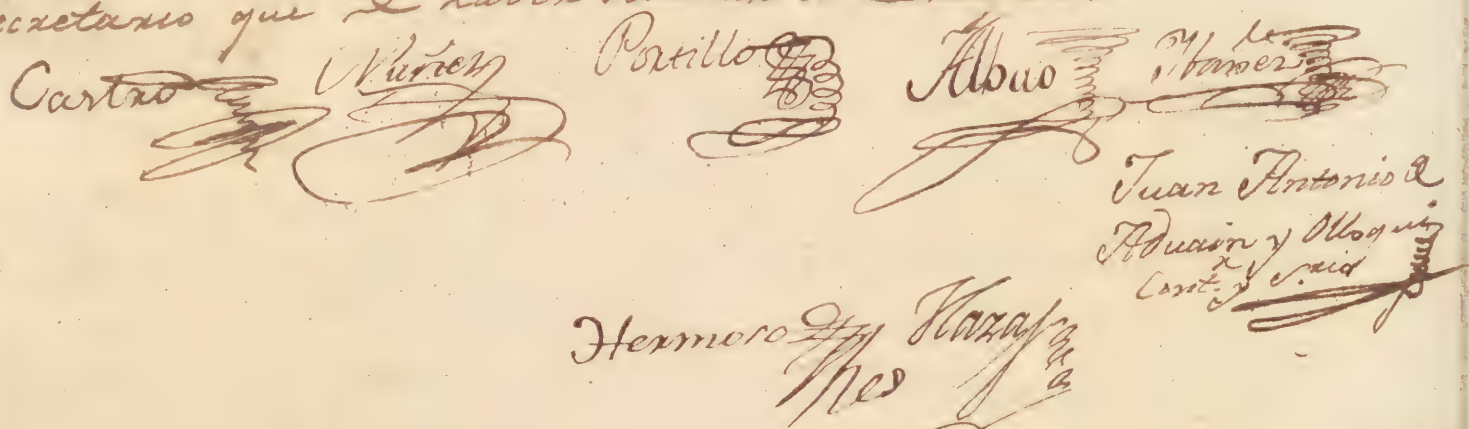 ecretario que
Castro Nuñez Portillo Albuo Ibañez
Juan Antonio de
Aduain y Olloqui
Cont.r y S.rio
Hermoso Hazas